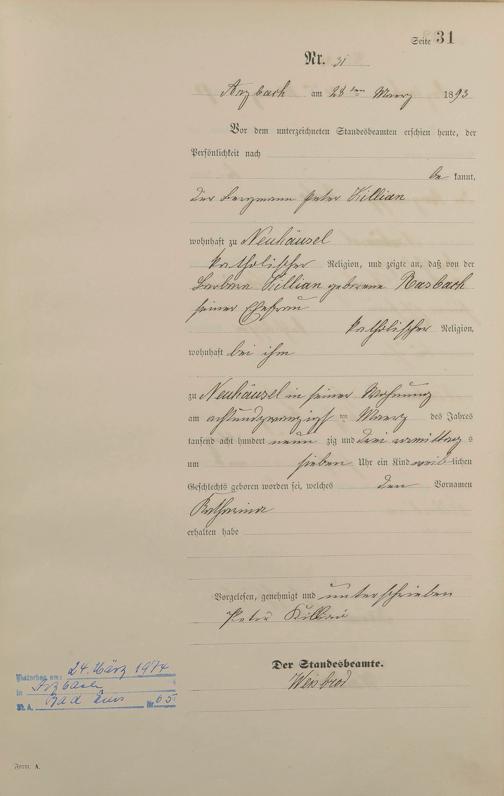 Seite 31
Nr. 31
Arzbach am 28ten Maerz 1893
Vor dem unterzeichneten Standesbeamten erschien heute, der
Persönlichkeit nach
be kannt,
der Bergmann Peter Killian
wohnhaft zu Neuhäusel
katholischer Religion, und zeigte an, daß von der
Barbara Killian geborene Rasbach
seiner Ehefrau
katholischer Religion,
wohnhaft bei ihm
zu Neuhäusel in seiner Wohnung
am achtundzwanzigsten Maerz des Jahres
tausend acht hundert neun zig und drei vormittags
um sieben Uhr ein Kind weiblichen
Geschlechts geboren worden sei, welches den Vornamen
Katharina
erhalten habe
Vorgelesen, genehmigt und unterschrieben
Peter Killian
Der Standesbeamte.
Weisbrod
24. März 1974
in Arzbach
St. A. Bad Ems Nr. 65
Form. A.